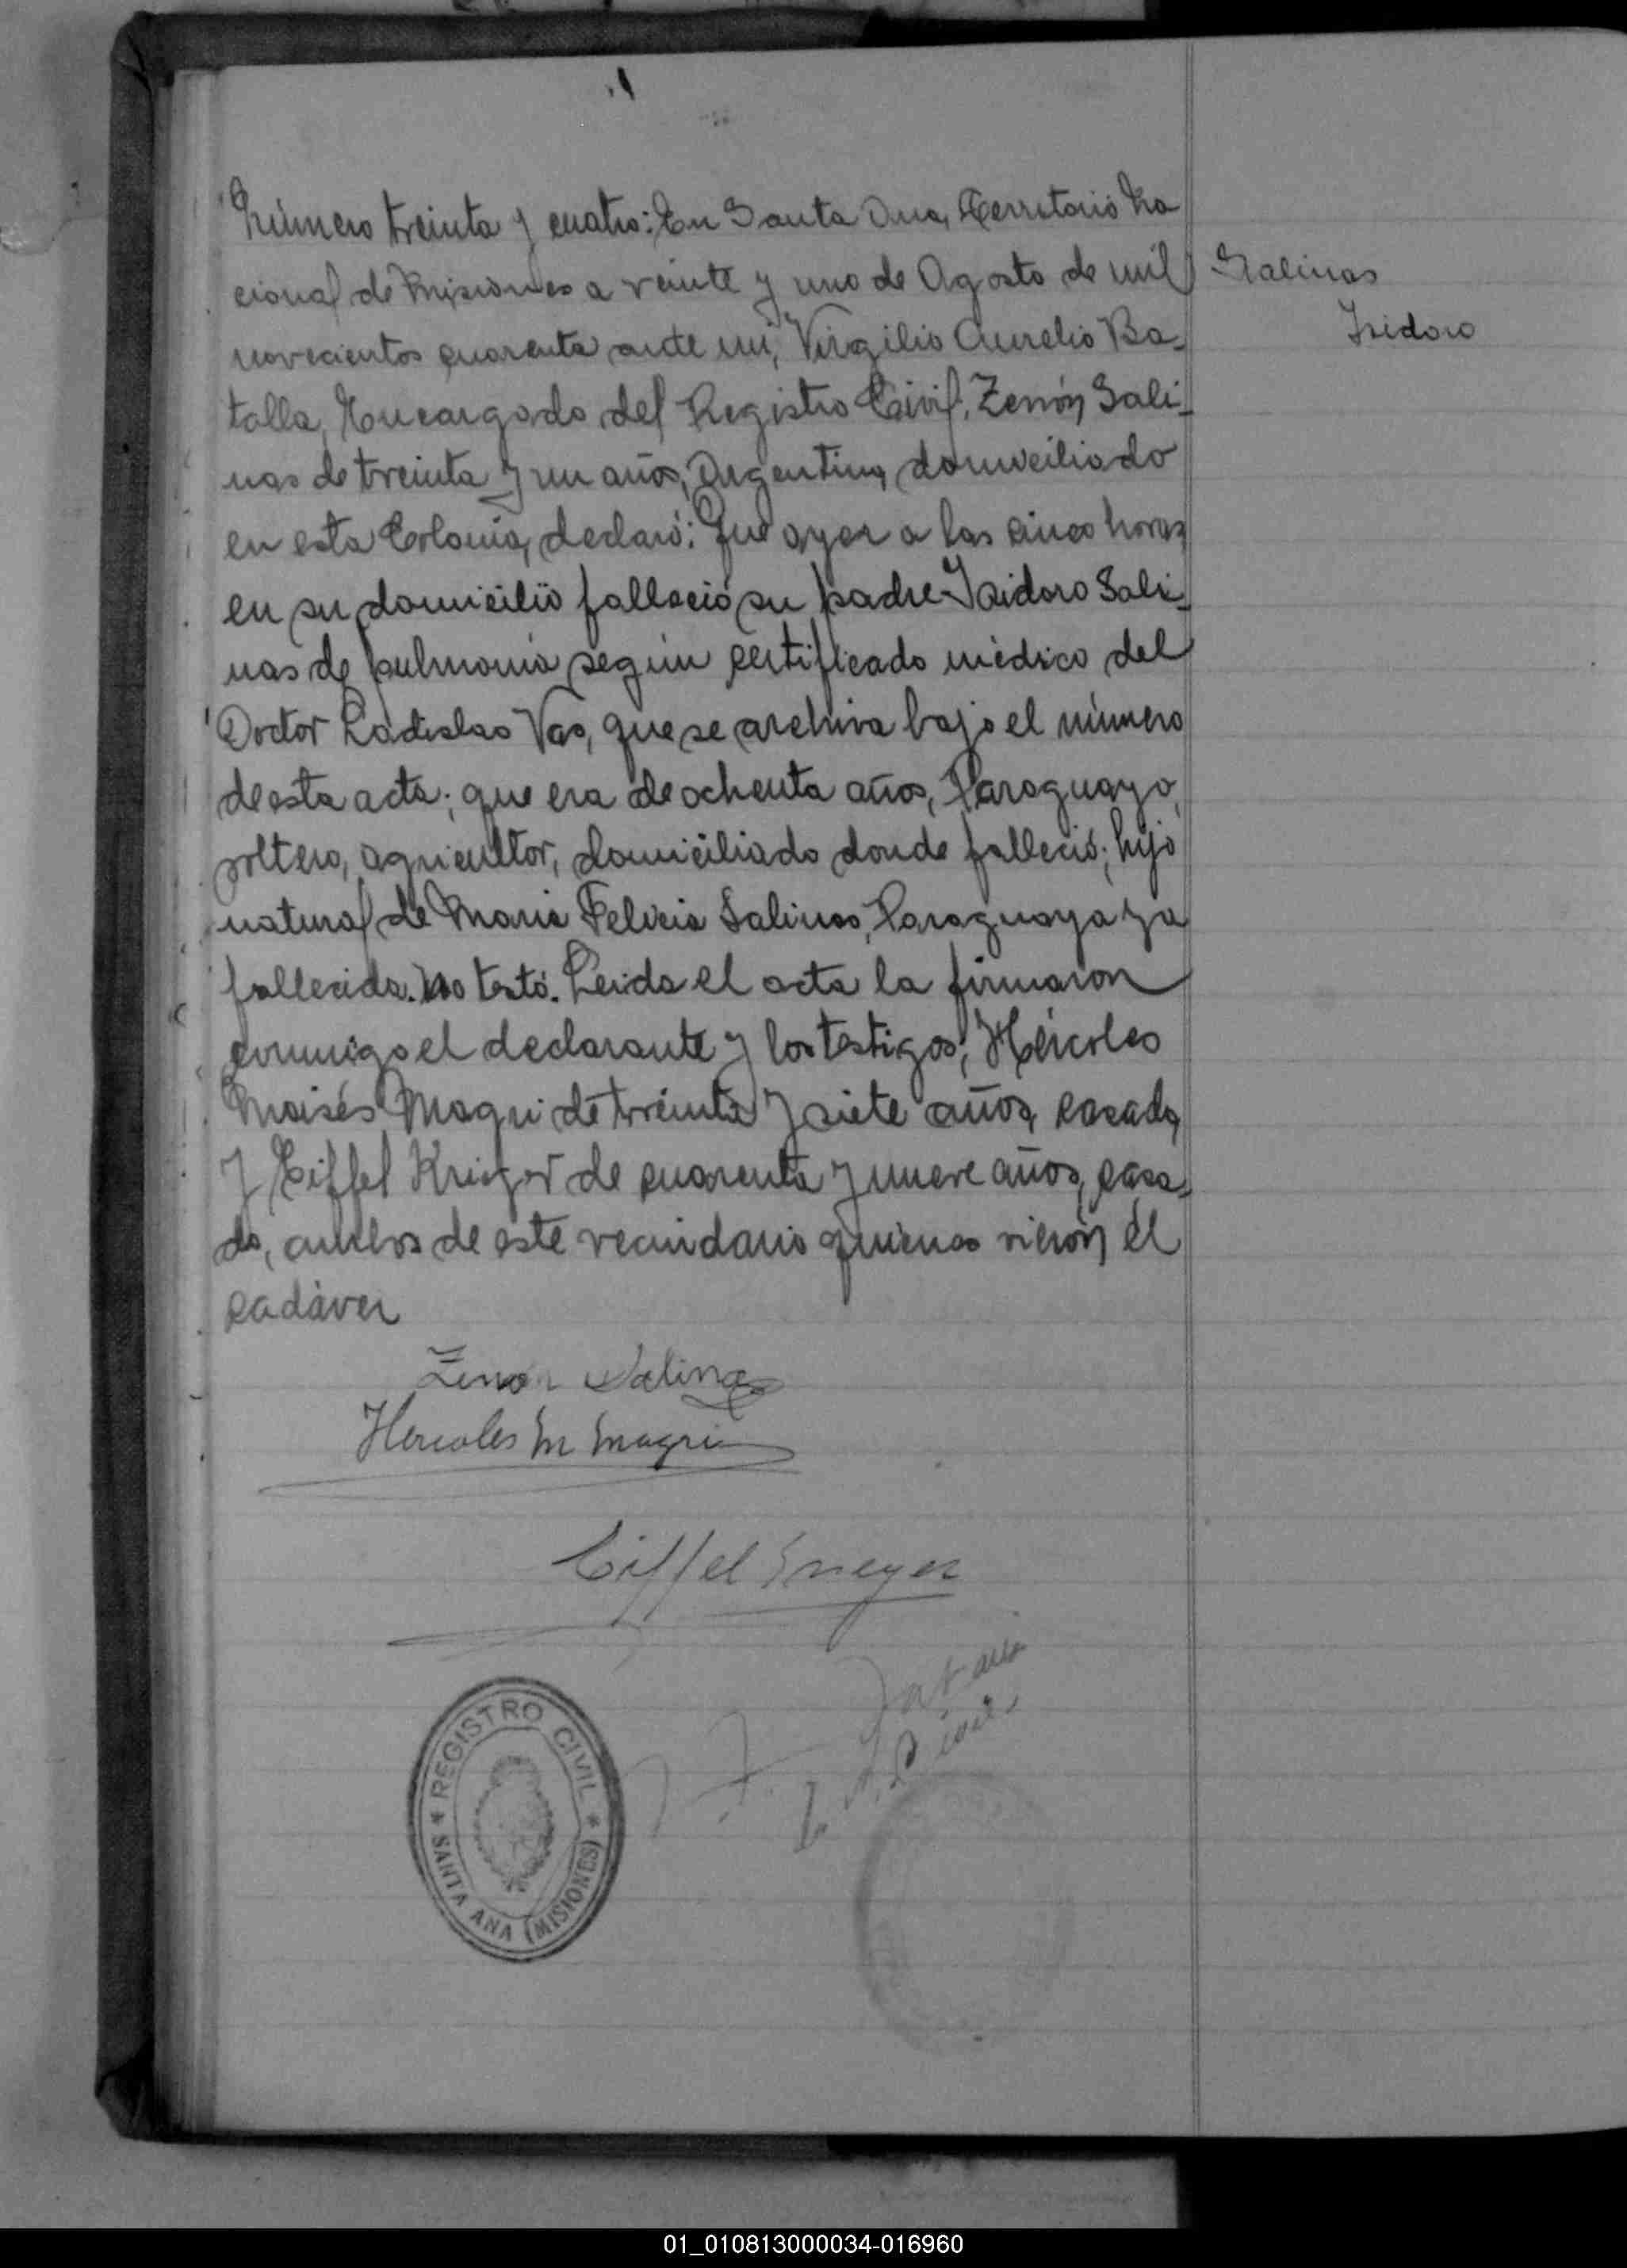 Número treinta y cuatro: En Santa Ana, Territorio Na
cional de Misiones a veinte y uno de Agosto de mil
novecientos cuarenta ante mi, Virgilio Aurelio Ba-
talla, Encargado del Registro Civil, Zenón Sali-
nas de treinta y un años, Argentino, domiciliado
en esta Colonia, declaró: Que ayer a las cinco horas
en su domicilio falleció su padre Isidoro Sali-
nas de pulmonia según certificado mèdico del
Doctor Ladislao Vas, que se archiva bajo el nùmero
de esta acta; que era de ochenta años, Paraguayo,
soltero, agricultor, domiciliado donde falleció; hijo
natural de Maria Felicia Salinas, Paraguaya ya
fallecida. No testó. Leida el acta la firmaron
conmigo el declarante y los testigos, Hércoles
Moisés Magri de treinta y siete años, casado,
y Eiffel Krieger de cuarenta y nueve años, casa-
do, ambos de este vecindario quienes vieron el
cadàver
Salinas
Isidoro
Zenon Salinas
Hercoles M Magri
Eiffel
REGISTRO CIVIL
SANTA ANA (MISIONES)
01_010813000034-016960